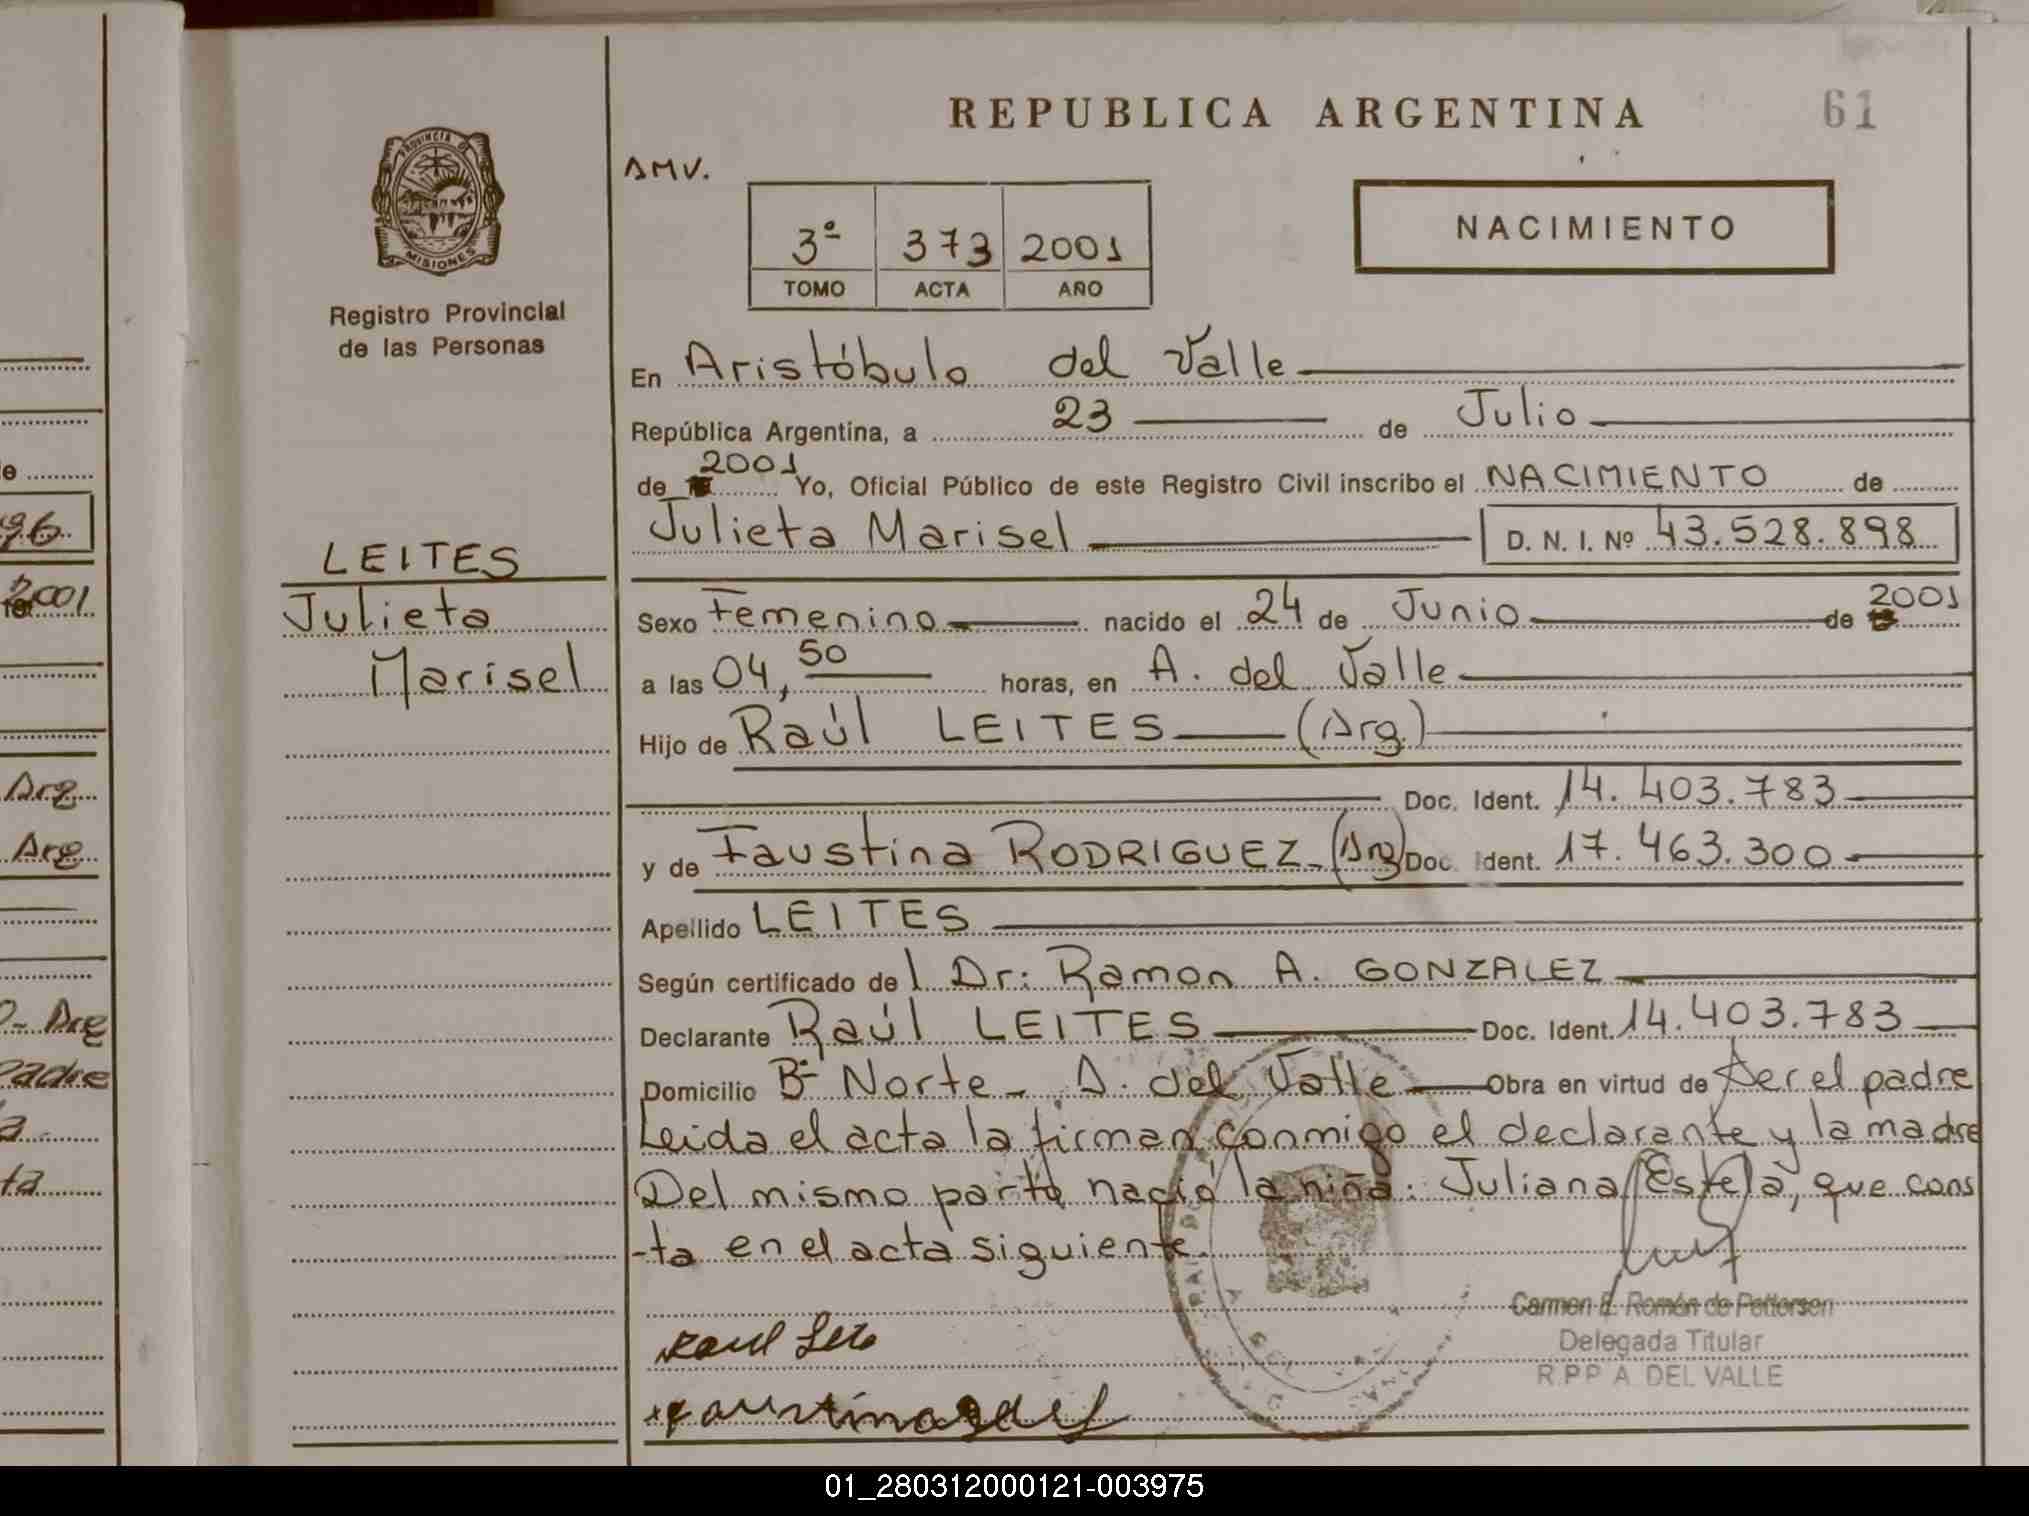 REPUBLICA ARGENTINA
61
PROVINCIA DE
MISIONES
Registro Provincial
de las Personas
AMV.
3º 373 2001
TOMO ACTA AÑO
NACIMIENTO
En Aristóbulo del Valle
República Argentina, a 23 de Julio
de 2001 Yo, Oficial Público de este Registro Civil inscribo el NACIMIENTO de
Julieta Marisel D. N. I. Nº 43.528.898
LEITES
Julieta
Marisel
Sexo Femenino nacido el 24 de Junio de 2001
a las 04,50 horas, en A. del Valle
Hijo de Raúl LEITES (Arg.)
Doc. Ident. 14.403.783
y de Faustina RODRIGUEZ (Arg) Doc. Ident. 17.463.300
Apellido LEITES
Según certificado de l Dr: Ramon A. GONZALEZ
Declarante Raúl LEITES Doc. Ident. 14.403.783
Domicilio Bº Norte - A. del Valle Obra en virtud de Ser el padre
Leida el acta la firman conmigo el declarante y la madre
Del mismo parto nació la niña: Juliana Estela, que cons
-ta en el acta siguiente.
Carmen E. Román de Pettersen
Delegada Titular
R.P.P A. DEL VALLE
96
2001
Arg
Arg
- Arg
padre
a
ta
01_280312000121-003975